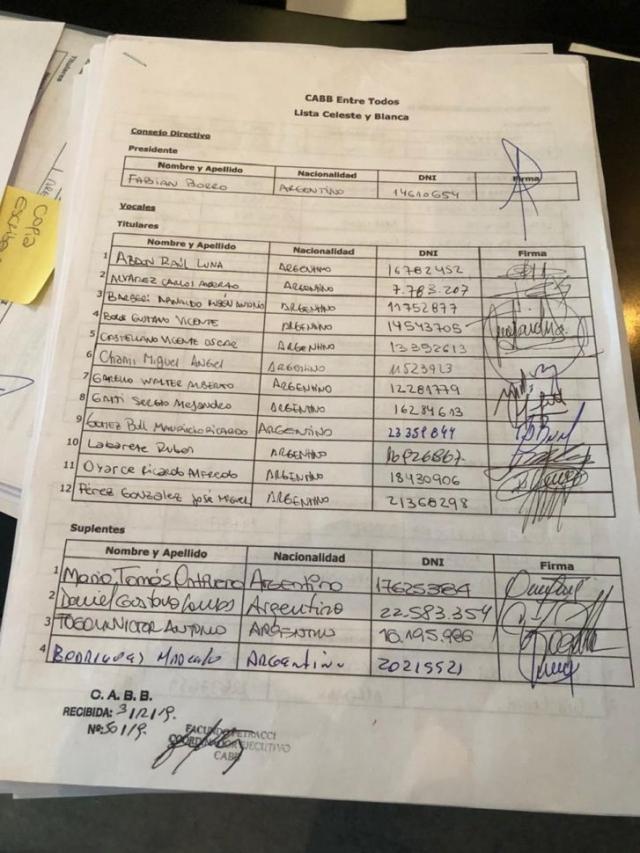 CABB Entre Todos
Lista Celeste y Blanca
Consejo Directivo
Presidente
Nombre y Apellido Nacionalidad DNI Firma
FABIAN BORRO ARGENTINO 14610654
Vocales
Titulares
Nombre y Apellido Nacionalidad DNI Firma
1 ABDON RAÚL LUNA ARGENTINO 16782452
2 ALVAREZ CARLOS ARGENTINO 7.783.207
3 ARNALDO RUBÉN ANTONIO ARGENTINO 11752877
4 GUSTAVO VICENTE ARGENTINO 14543705
5 CASTELLANO VICENTE OSCAR ARGENTINO 13352613
6 Chami Miguel Angel ARGENTINO 11523923
7 GARELLO WALTER ALBERTO ARGENTINO 12281779
8 GATTI SERGIO Alejandro ARGENTINO 16284613
9 GOMEZ BULL MAURICIO RICARDO ARGENTINO 23359844
10 Labarere Ruben ARGENTINO 16926867
11 Oyarce Ricardo Alfredo ARGENTINO 18430906
12 Pérez González José Miguel ARGENTINO 21368298
Suplentes
Nombre y Apellido Nacionalidad DNI Firma
1 Mario Tomás Argentino 17625384
2 Daniel Gustavo Argentino 22.583.354
3 VICTOR ANTONIO ARGENTINO 16.195.986
4 RODRIGUES MARCELO ARGENTINO 20215521
C. A. B. B.
RECIBIDA: 3/12/19.
Nº: 50/19.
FACUNDO PETRACCI
COORDINADOR EJECUTIVO
CABB
Copia
Titulares